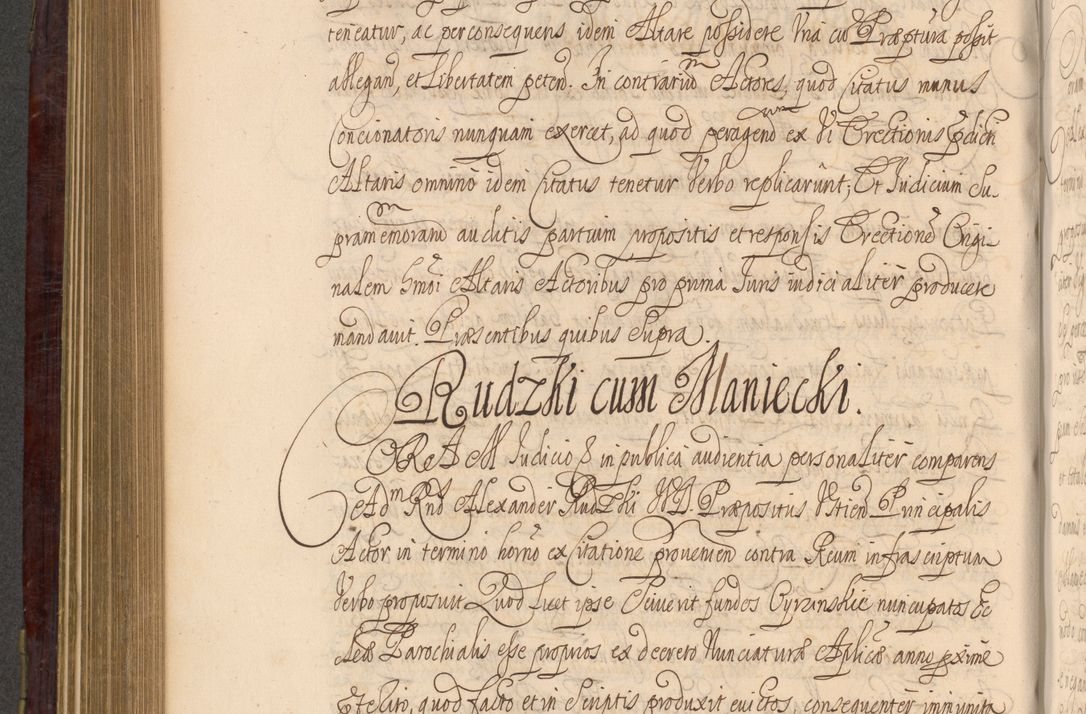 teneatur, ac per consequens idem Altare possidere Una cū Præptura possit
allegand, et Libertatem petend. In contrariū Actores, quod Citatus munus
Concionatoris nunquam exercet, ad quod peragend ex Vi Erectionis pdicti
Altaris omnino idem Citatus tenetur Verbo replicarunt; Et Judicium Su-
pramemoram auditis partium propositis et responsis Erectionē Origi-
nalem hmōi Altaris Actoribus pro prima Juris iudicialiter producere
mandavit. Præsentibus quibus Supra.
Rudzki cum Maniecki.
Judicio in publica audientia personaliter comparens
Adm Rnd Alexander Rudzki Præpositus Ustien Principalis
Actor in termino horno ex Citatione provenien contra Reum infrascriptum
Verbo proposuit Quod licet ipse Sciverit fundos Cyrzinskie nuncupatos Ec
clesæ Parochialis esse proprios ex decreto Nunciaturæ Aplicæ anno pxime
quod facto et in Scriptis produxit evictos, consequenter immunita